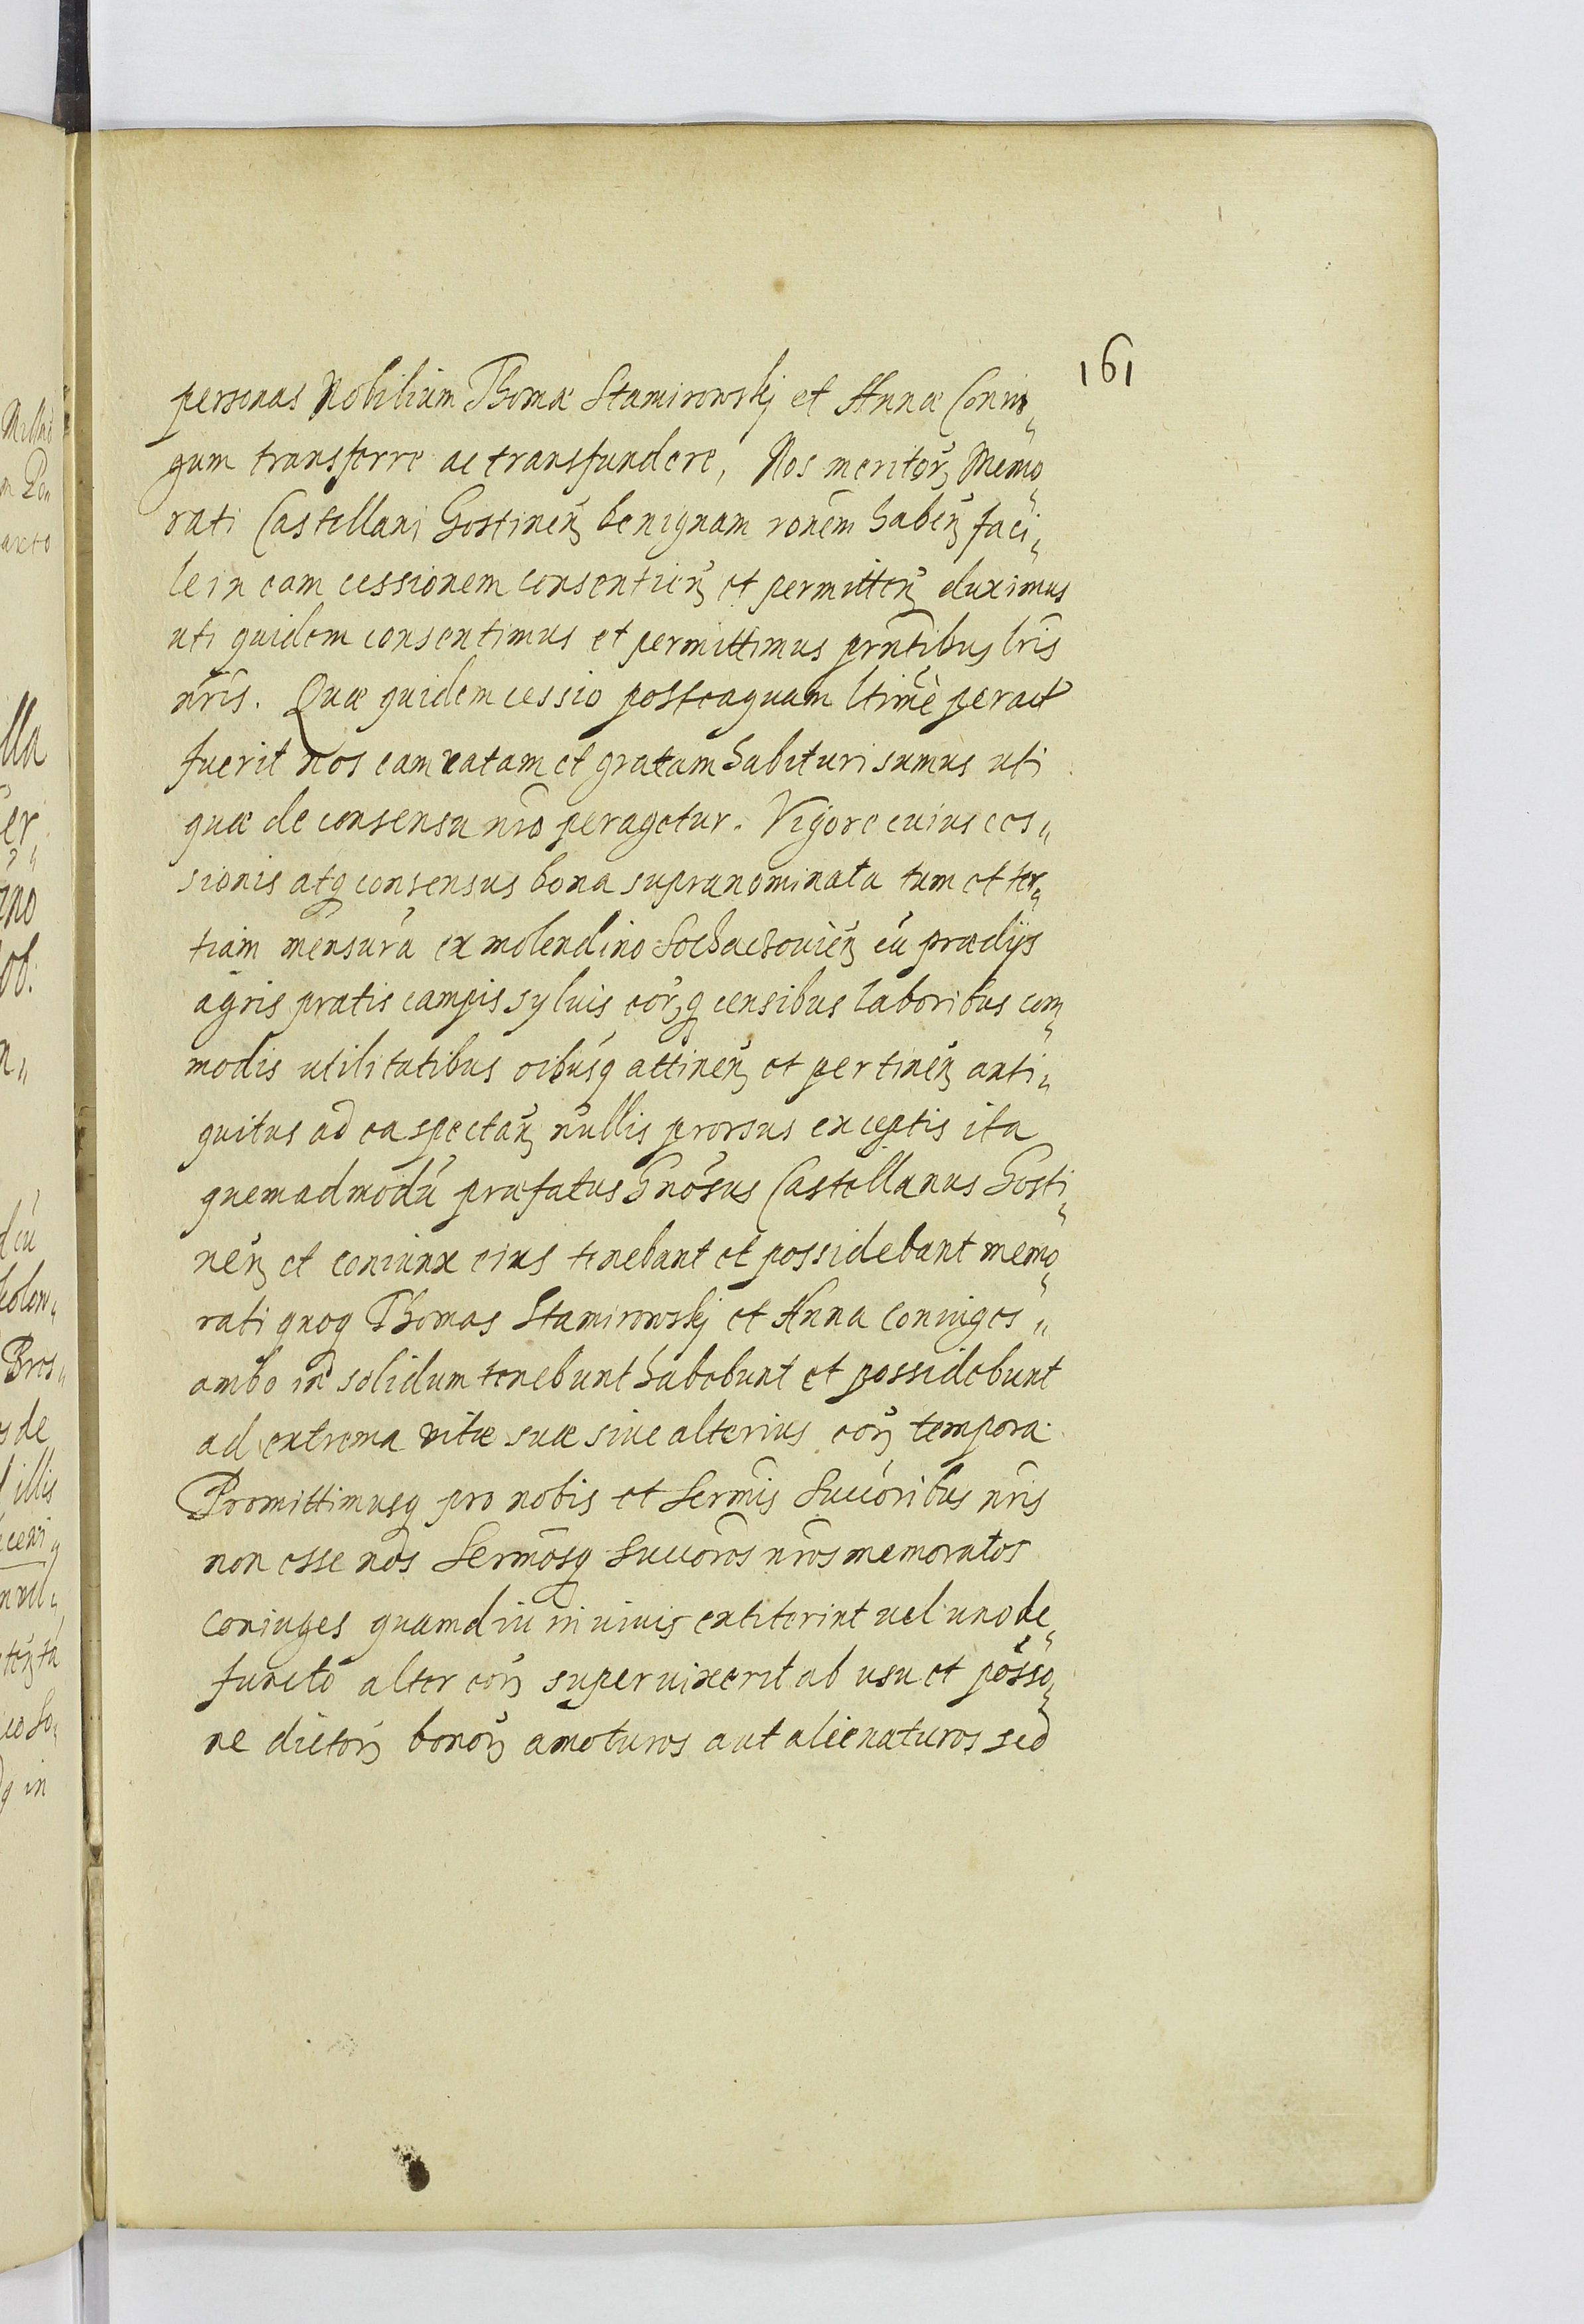 161
personas Nobilium Thomæ Stamirowskj et Annæ Coniu„
gum transferre ac transfundere, Nos meritorꝫ Memo„
rati Castellanj Gostineñ benignam rõnem habeñ faci„
le in eam cessionem consentieñ et permitteñ duximus
uti quidem consentimus et permittimus prñtibus lris̃
nris̃. Quæ quidem cessio posteaquam ltimè peract
fuerit nos eam ratam et gratam habituri sumus uti
quæ de consensu nro̅ peragetur. Vigore cuius ces„
sionis atqꝫ consensus bona supranominata tum et ter„
tiam mensurã ex molendino Sochaczouieñ cũ prædijs
agris pratis campis syluis eorꝫqꝫ censibus laboribus com„
modis utilitatibus oĩbusqꝫ attineñ et pertineñ anti„
quitus ad ea spectañ nullis prorsus exceptis ita
quemadmodũ præfatus Gnõsus Castellanus Gosti„
neñ et coniunx eius tenebant et possidebant memo„
rati quoqꝫ Thomas Stamirowskj et Anna coniuges „
ambo in solidum tenebunt habebunt et possidebunt
ad extrema vitæ suæ siue alterius eorꝫ tempora
Promittimusqꝫ pro nobis et Sermĩs Succõribus nris̃
non esse nos Sermõsqꝫ Succõres nrõs memoratos
coniuges quamdiu in uiuis extiterint uel uno de„
functo alter eorꝫ superuixerit ab usu et põsso„
ne dictorꝫ bonorꝫ amoturos aut alienaturos sed